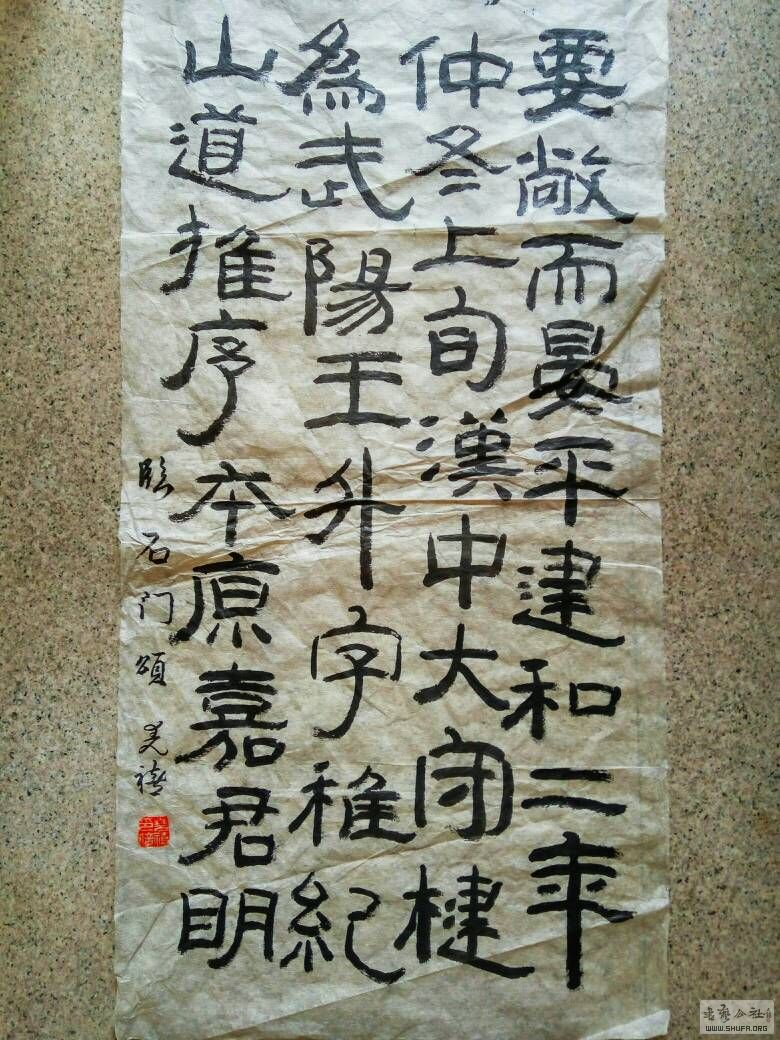 要敞而晏平建和二年
仲冬上旬漢中大守楗
為武陽王升字稚紀
山道推序本原嘉君明
臨石门頌
書藝公社
WWW.SHUFA.ORG